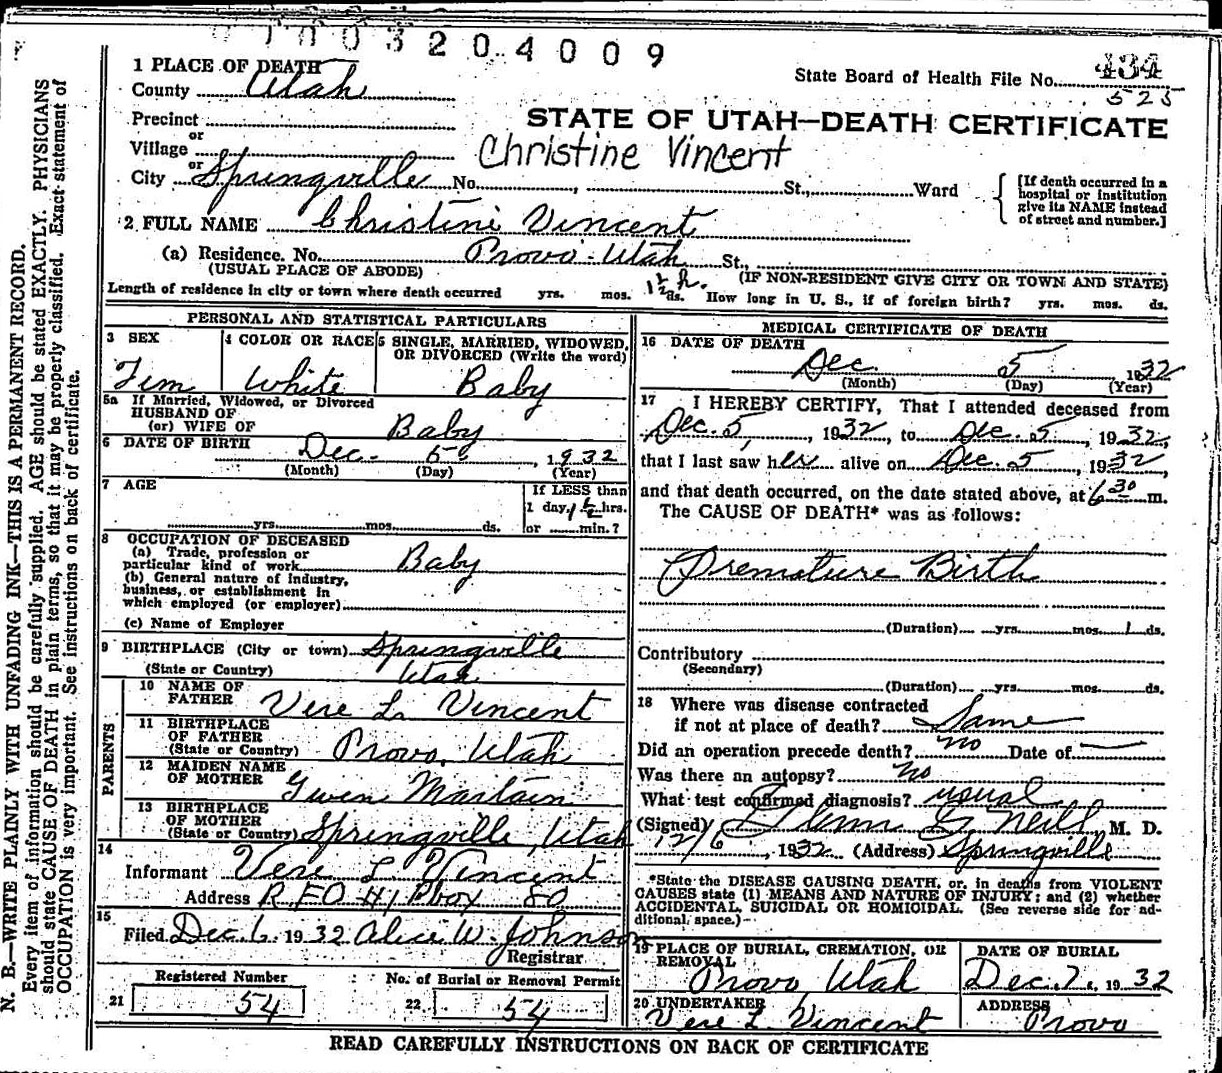 0100320 4009
1 PLACE OF DEATH
State Board of Health File No. 434
County Utah
525
Precinct
STATE OF UTAH—DEATH CERTIFICATE
or
Village
Christine Vincent
or
City Springville No. St., Ward
[If death occurred in a hospital or institution give its NAME instead of street and number.]
2 FULL NAME Christine Vincent
(a) Residence. No. Provo Utah St.,
(USUAL PLACE OF ABODE) (IF NON-RESIDENT GIVE CITY OR TOWN AND STATE)
Length of residence in city or town where death occurred yrs. mos. 1½ h. ds. How long in U. S., if of foreign birth? yrs. mos. ds.
PERSONAL AND STATISTICAL PARTICULARS
3 SEX
Fem
4 COLOR OR RACE
White
5 SINGLE, MARRIED, WIDOWED,
OR DIVORCED (Write the word)
Baby
5a If Married, Widowed, or Divorced
HUSBAND OF
(or) WIFE OF Baby
6 DATE OF BIRTH Dec. 5 1932
(Month) (Day) (Year)
7 AGE
yrs. mos. ds.
If LESS than
1 day, 1½ hrs.
or min.?
8 OCCUPATION OF DECEASED
(a) Trade, profession or
particular kind of work Baby
(b) General nature of industry,
business, or establishment in
which employed (or employer)
(c) Name of Employer
9 BIRTHPLACE (City or town) Springville
(State or Country) Utah
PARENTS
10 NAME OF
FATHER Vere L. Vincent
11 BIRTHPLACE
OF FATHER
(State or Country) Provo, Utah
12 MAIDEN NAME
OF MOTHER Gwen Martain
13 BIRTHPLACE
OF MOTHER
(State or Country) Springville, Utah
14
Informant Vere L Vincent
Address R F D #1 Pbox 80
15
Filed Dec 6, 1932 Alice W. Johnson
Registrar
Registered Number
21 54
No. of Burial or Removal Permit
22 54
MEDICAL CERTIFICATE OF DEATH
16 DATE OF DEATH
Dec. 5 1932
(Month) (Day) (Year)
17 I HEREBY CERTIFY, That I attended deceased from
Dec. 5, 1932, to Dec. 5, 1932,
that I last saw her alive on Dec. 5, 1932,
and that death occurred, on the date stated above, at 6 30 m.
The CAUSE OF DEATH* was as follows:
Premature Birth
(Duration) yrs. mos. 1 ds.
Contributory
(Secondary)
(Duration) yrs. mos. ds.
18 Where was disease contracted
if not at place of death? Same
Did an operation precede death? no Date of
Was there an autopsy? no
What test confirmed diagnosis? usual
(Signed) Glenn G. Neill, M. D.
12/6, 1932 (Address) Springville
*State the DISEASE CAUSING DEATH, or, in deaths from VIOLENT
CAUSES state (1) MEANS AND NATURE OF INJURY; and (2) whether
ACCIDENTAL, SUICIDAL OR HOMICIDAL. (See reverse side for ad-
ditional space.)
19 PLACE OF BURIAL, CREMATION, OR
REMOVAL
Provo Utah
DATE OF BURIAL
Dec. 7, 1932
20 UNDERTAKER
Vere L Vincent
ADDRESS
Provo
READ CAREFULLY INSTRUCTIONS ON BACK OF CERTIFICATE
N. B.—WRITE PLAINLY WITH UNFADING INK—THIS IS A PERMANENT RECORD.
Every item of information should be carefully supplied. AGE should be stated EXACTLY. PHYSICIANS
should state CAUSE OF DEATH in plain terms, so that it may be properly classified. Exact statement of
OCCUPATION is very important. See instructions on back of certificate.